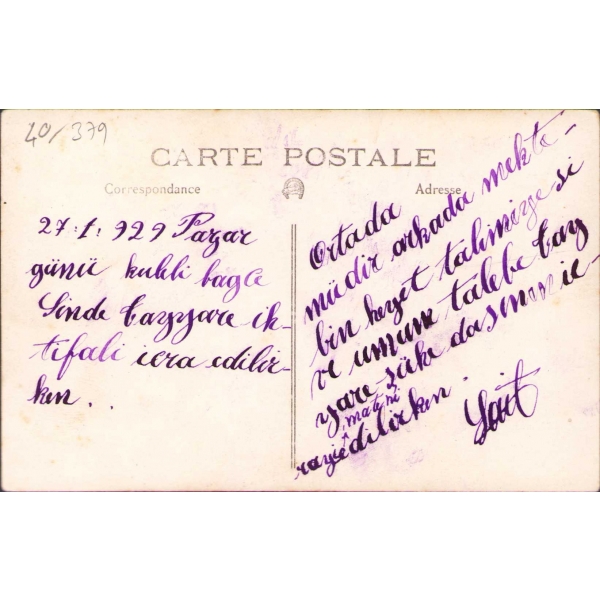 40/379
CARTE POSTALE
Correspondance
Adresse
27.1.929 Pazar
günü kuleli bagçe
sinde tayyare ik-
tifali icra edilir-
ken..
Ortada
müdir arkada mekte-
bin heyet talimiye si
ve umum talebe tay
yare
matini
edilirken.
Sait